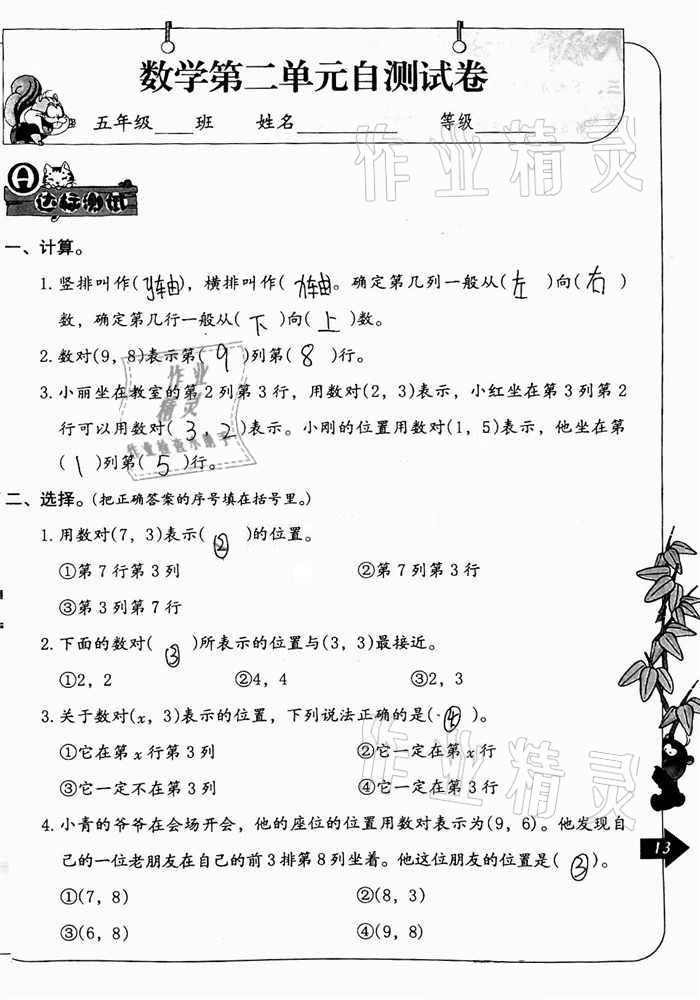 数学第二单元自测试卷
五年级____班 姓名________ 等级_____
A
达标测试
一、计算。
1. 竖排叫作(y轴), 横排叫作(x轴)。确定第几列一般从(左)向(右)
数, 确定第几行一般从(下)向(上)数。
2. 数对(9, 8)表示第(9)列第(8)行。
3. 小丽坐在教室的第2列第3行, 用数对(2, 3)表示, 小红坐在第3列第2
行可以用数对(3, 2)表示。小刚的位置用数对(1, 5)表示, 他坐在第
(1)列第(5)行。
二、选择。(把正确答案的序号填在括号里。)
1. 用数对(7, 3)表示(②)的位置。
①第7行第3列 ②第7列第3行
③第3列第7行
2. 下面的数对(③)所表示的位置与(3, 3)最接近。
①2, 2 ②4, 4 ③2, 3
3. 关于数对(x, 3)表示的位置, 下列说法正确的是(④)。
①它在第x行第3列 ②它一定在第x行
③它一定不在第3列 ④它一定在第3行
4. 小青的爷爷在会场开会, 他的座位的位置用数对表示为(9, 6)。他发现自
己的一位老朋友在自己的前3排第8列坐着。他这位朋友的位置是(③)。
①(7, 8) ②(8, 3)
③(6, 8) ④(9, 8)
13
作业精灵
作业精灵
作业
精灵
作业检查小助手